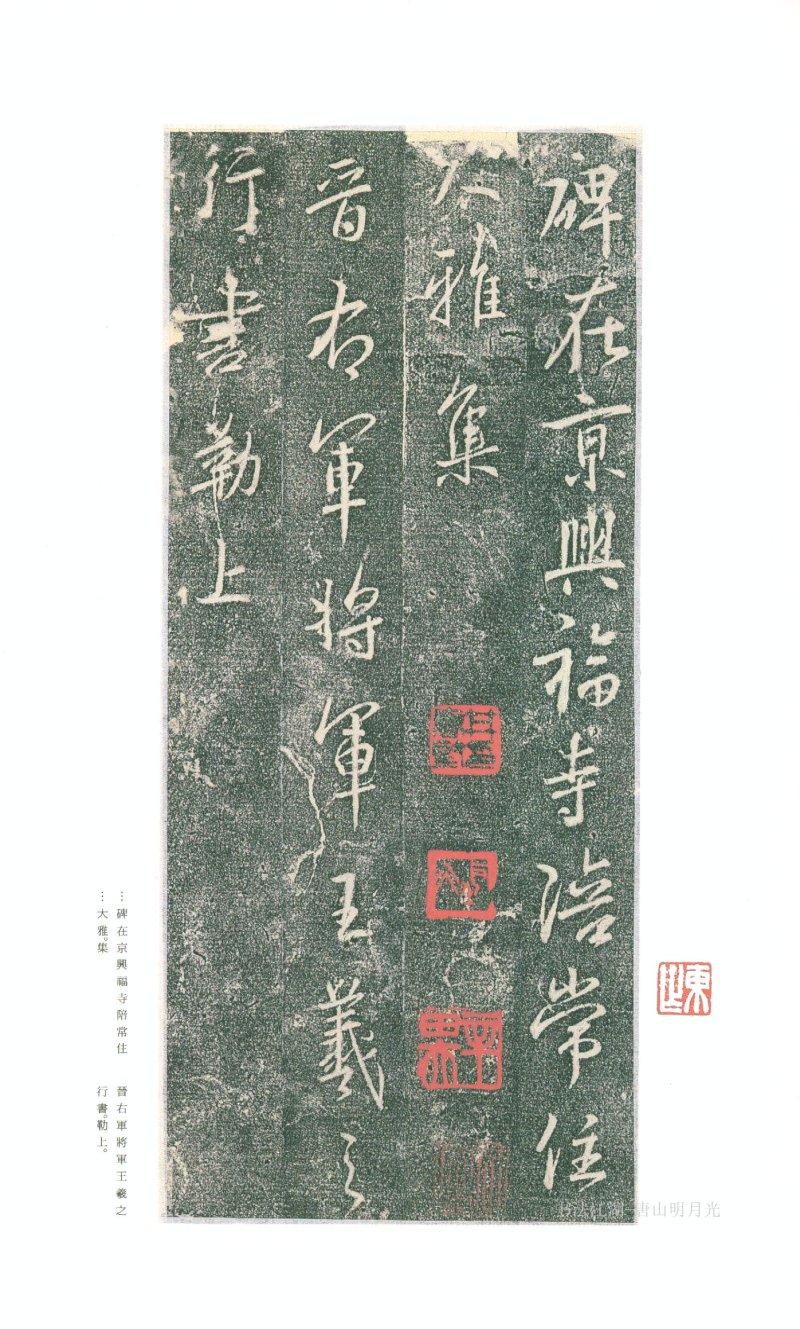 碑在京興福寺陪常住
大雅集
晉右軍將軍王羲之
行書勒上
…碑在京興福寺陪常住
…大雅。集
晉右軍將軍王羲之
行書。勒上。
唐山明月光